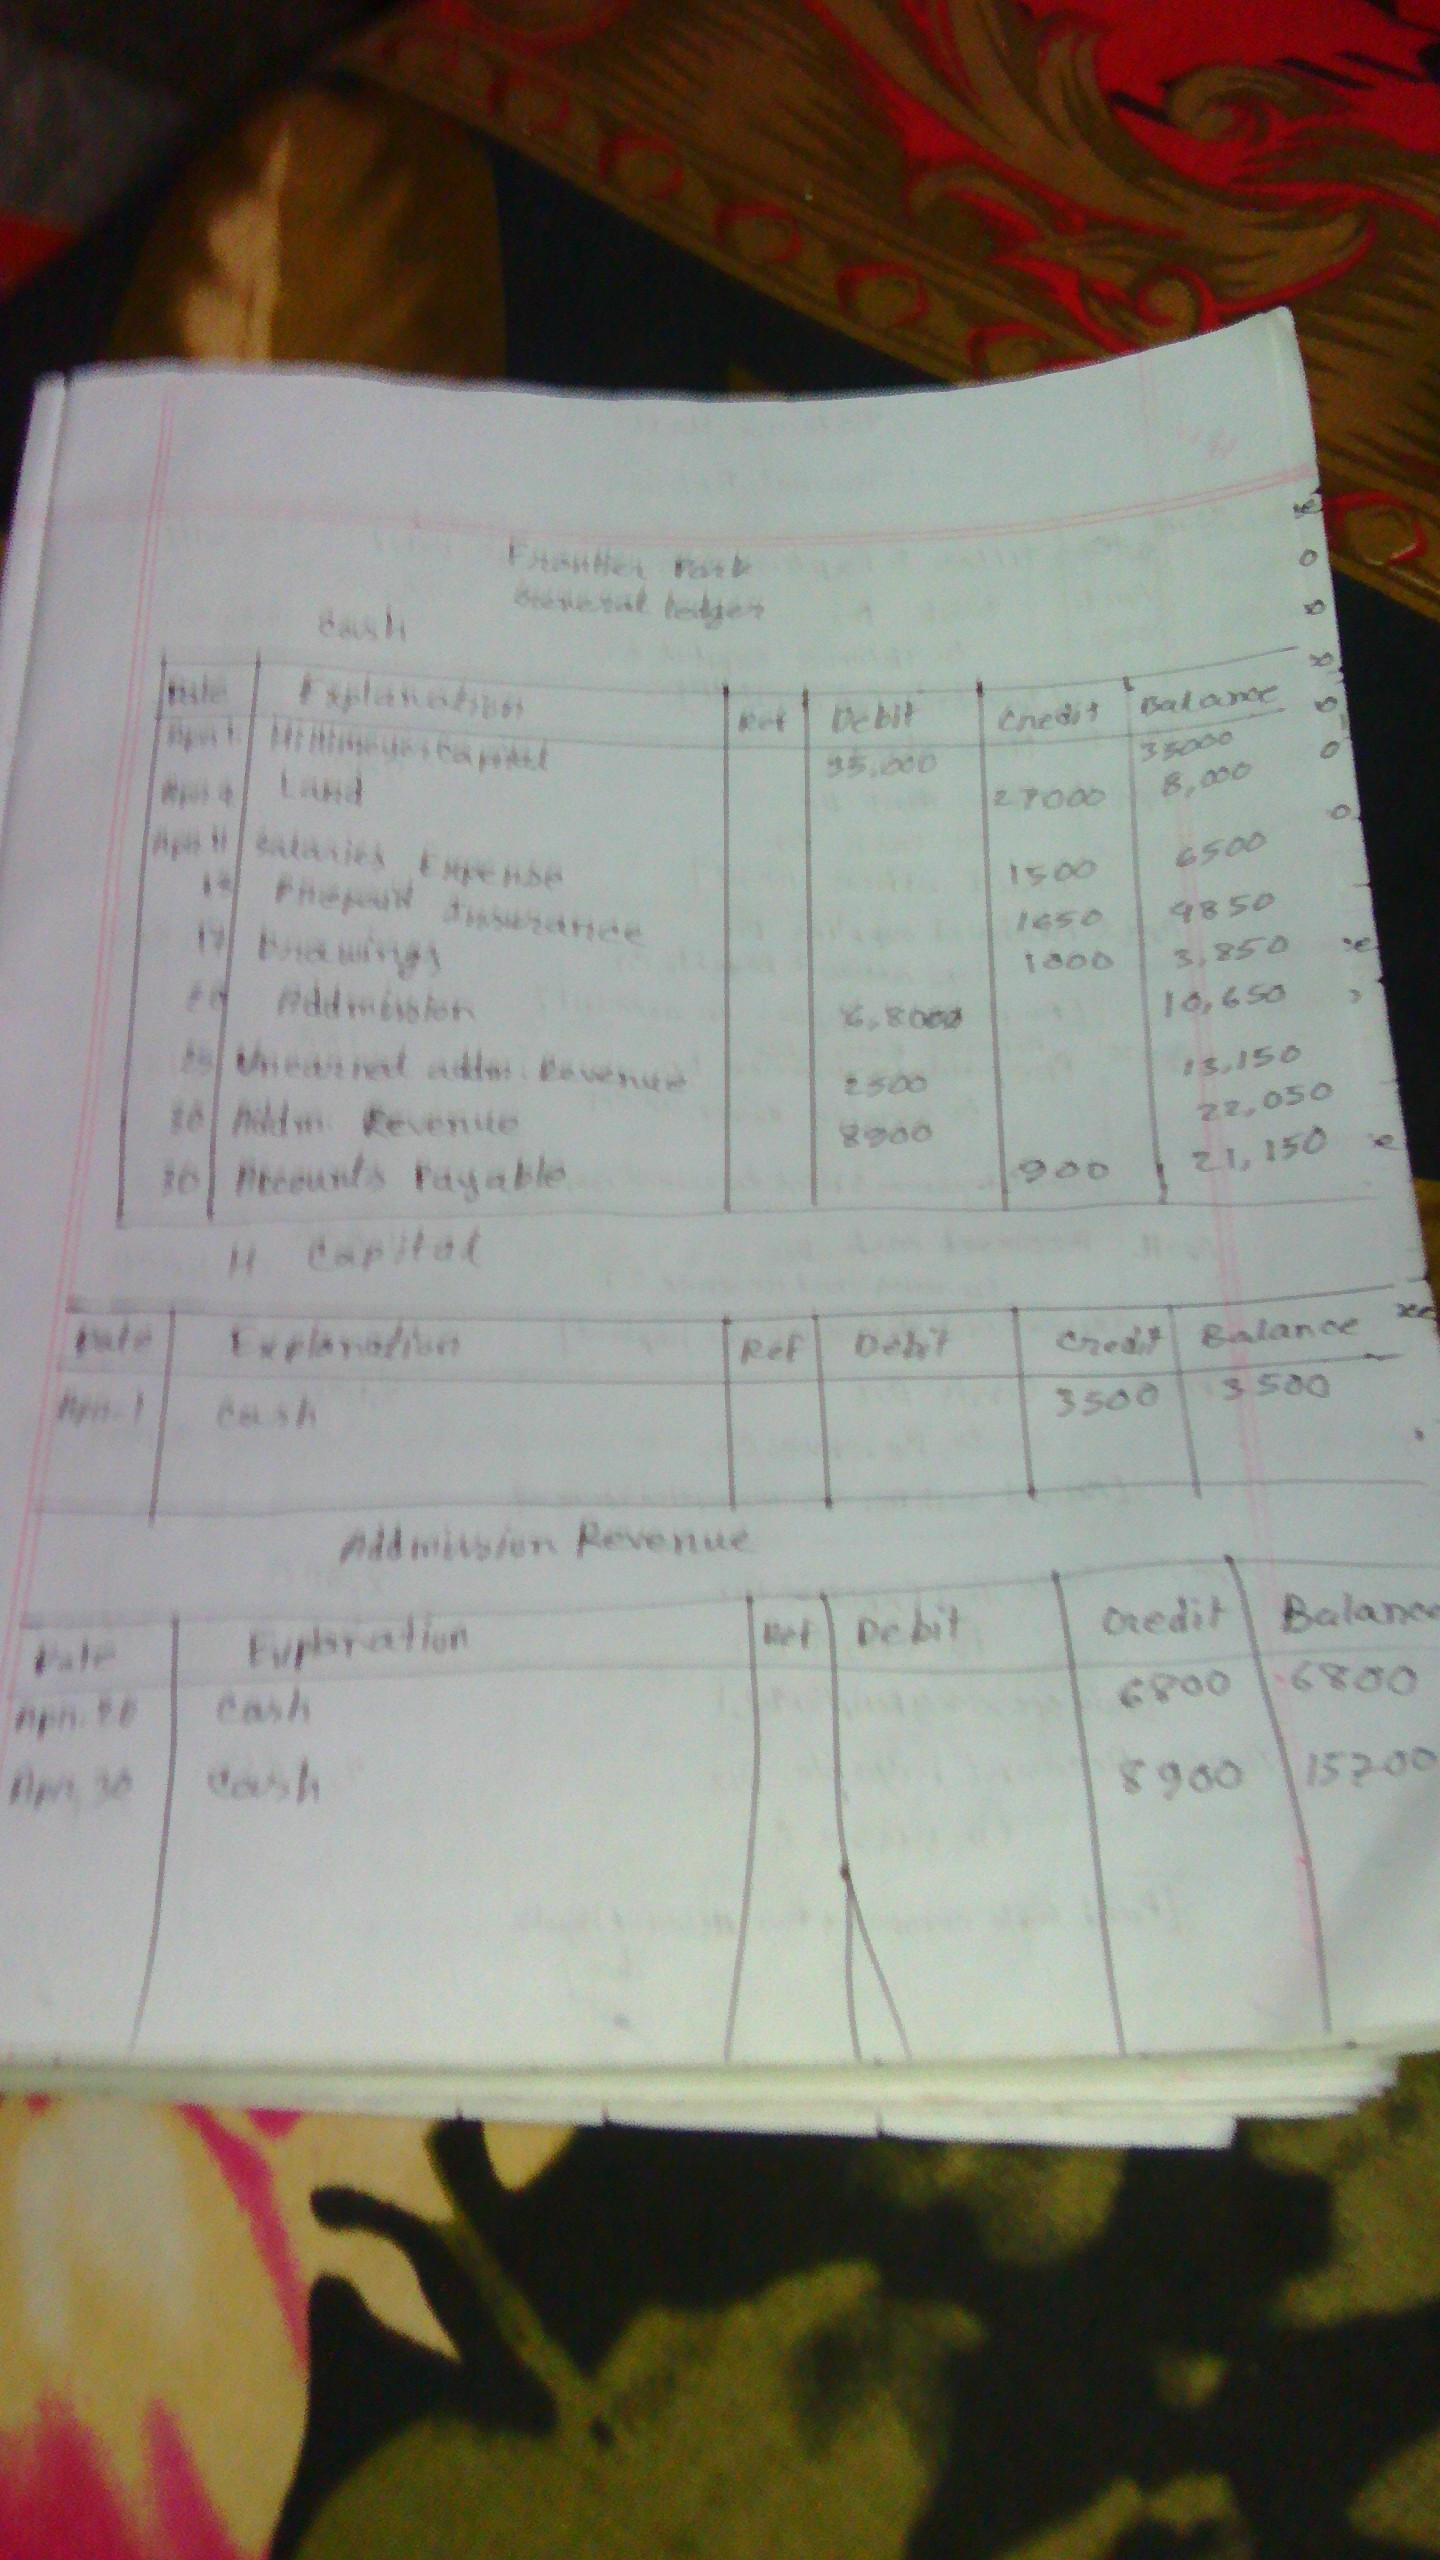 Frontier Park
General Ledger
Cash
Date Explanation Ref Debit Credit Balance
Apri 1 Capital 35,000 35000
Apri 4 Land 27000 8,000
Apri 11 Salaries Expense 1500 6500
Prepaid Insurance 1650 4850
17 Drawings 1000 3,850
20 Addmission 6,8000 10,650
25 Unearned addm. Revenue 2500 13,150
30 Addm. Revenue 8900 22,050
30 Accounts Payable 900 21,150
H. Capital
Date Explanation Ref Debit Credit Balance
Apri. 1 Cash 3500 3500
Addmission Revenue
Date Explanation Ref Debit Credit Balance
Apri. 20 Cash 6800 6800
Apri, 30 Cash 8900 15700